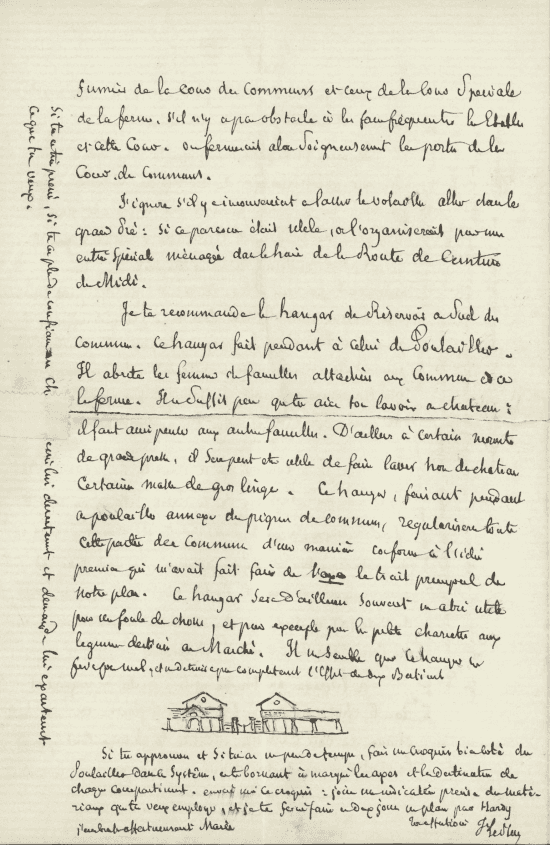 fumiers de la cour des Communs et ceux de la Cour Spéciale
de la ferme. S'il n'y a pas obstacle à les faire fréquenter les Etables
et cette Cour. on fermerait alors Soigneusement la porte de la
Cour de Communs.
J'ignore s'il y a inconvénient à laisser la volaille aller dans le
grand Pré : Si ce parcours était utile, on l'organiserait par une
entrée Spéciale ménagée dans la haie de la Route de Ceinture
du Midi.
Je te recommande le hangar du Réservoir au Sud des
Communs. Ce hangar fait pendant à celui du Poulailler.
Il abrite les femmes de familles attachées aux Communs et à
la ferme. Il ne Suffit pas que tu aies ton lavoir au chateau :
il faut aussi penser aux autres familles. D'ailleurs à certains moments
de grande presse, il Sera peut être utile de faire laver hors du chateau
Certaines masses de gros linge. Ce hangar, faisant pendant
au poulailler annexe du pignon des communs, régularisera toute
cette partie des Communs d'une manière conforme à l'idée
première qui m'avait fait faire de l'axe le trait principal de
notre plan. Ce hangar Sera d'ailleurs Souvent un abri utile
pour une foule de choses, et par exemple pour la petite charrette aux
légumes destinés au Marché. Il me Semble que ce hangar ne
fera pas mal, et au contraire que complétant l'Effet des deux Batiments
Si tu approuves et Si tu as un peu de temps, fais un Croquis bien coté du
Poulailler dans ce Système, en te bornant à marquer les axes et la destination de
chaque Compartiment. envoie moi ce croquis : joins une indication précise des maté-
riaux que tu veux employer, et je te ferai faire un plan par Hardy
J'embrasse affectueusement Marie
Ton affectionné
Si tu as très pressé, Si tu as plus de confiance en Ch
écris lui directement et demande lui exactement
Ce que tu veux.